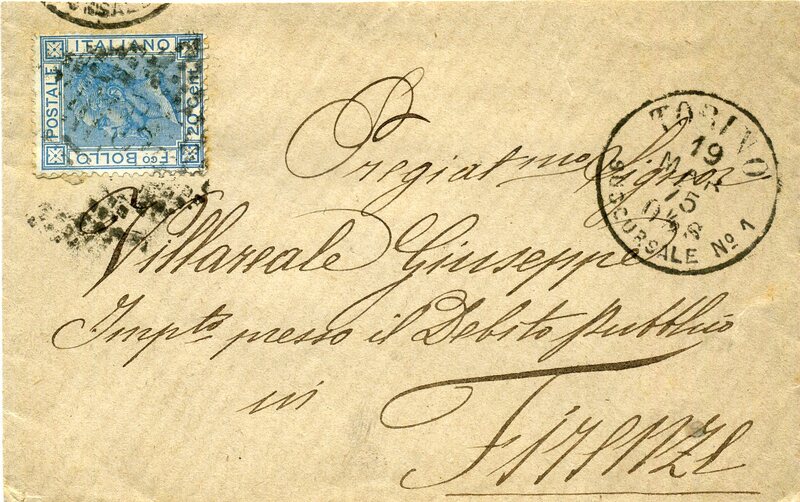 POSTALE
ITALIANO
20 Cent.
F.co BOLLO
TORINO
19
MAR
75
SUCCURSALE No 1
Pregiatmo Signor
Villareale Giuseppe
Impto presso il Debito Pubblico
in
Firenze